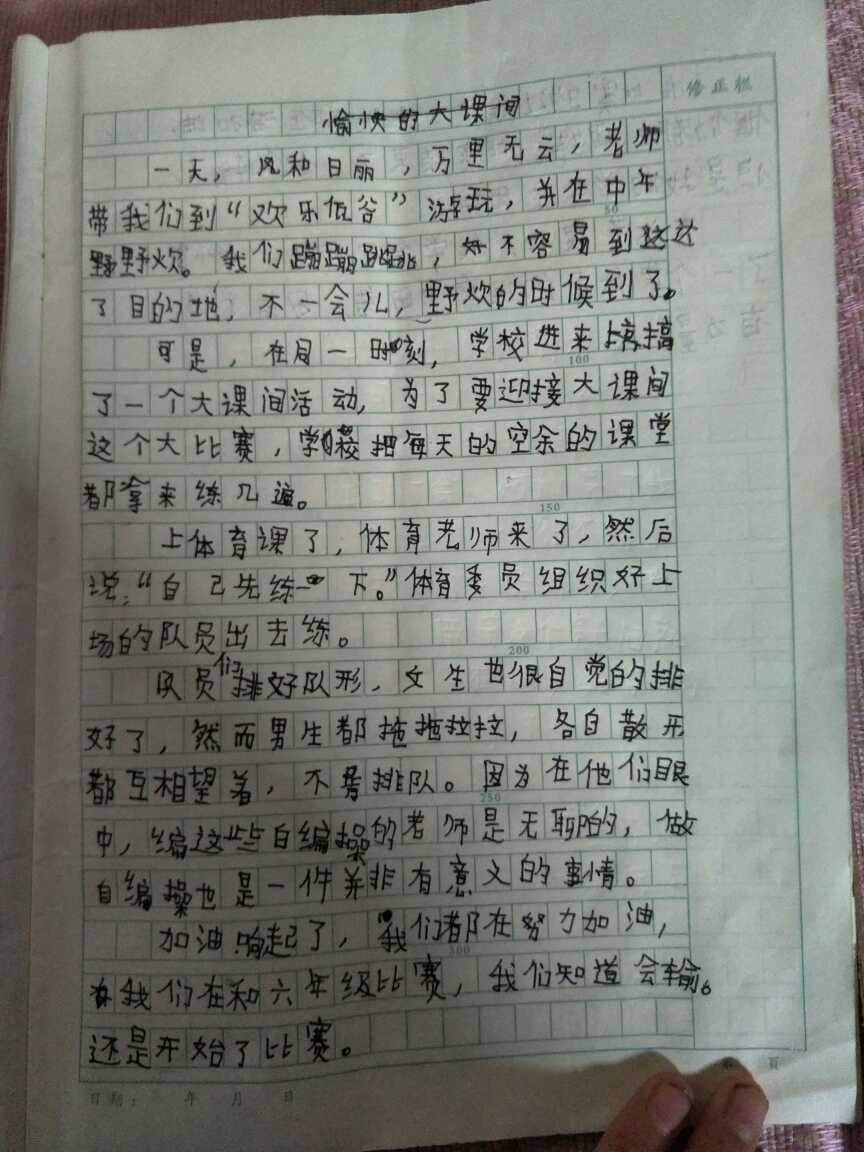 修正栏
愉快的大课间
一天，风和日丽，万里无云，老师
带我们到“欢乐低谷”游玩，并在中午
野野炊。我们蹦蹦跳跳，好不容易到达
了目的地，不一会儿，野炊的时候到了。
可是，在同一时刻，学校进来搞
100
了一个大课间活动，为了要迎接大课间
这个大比赛，学校把每天的空余的课堂
都拿来练几遍。
150
上体育课了，体育老师来了，然后
说：“自己先练一下。”体育委员组织好上
场的队员出去练。
200
队员们排好队形，女生也很自觉的排
好了，然而男生都拖拖拉拉，各自散开
都互相望着，不排队。因为在他们眼
250
中，编这些自编操的老师是无聊的，做
自编操也是一件并非有意义的事情。
加油响起了，我们都在努力加油，
300
我们在和六年级比赛，我们知道会输。
还是开始了比赛。
日期： 年 月 日
页